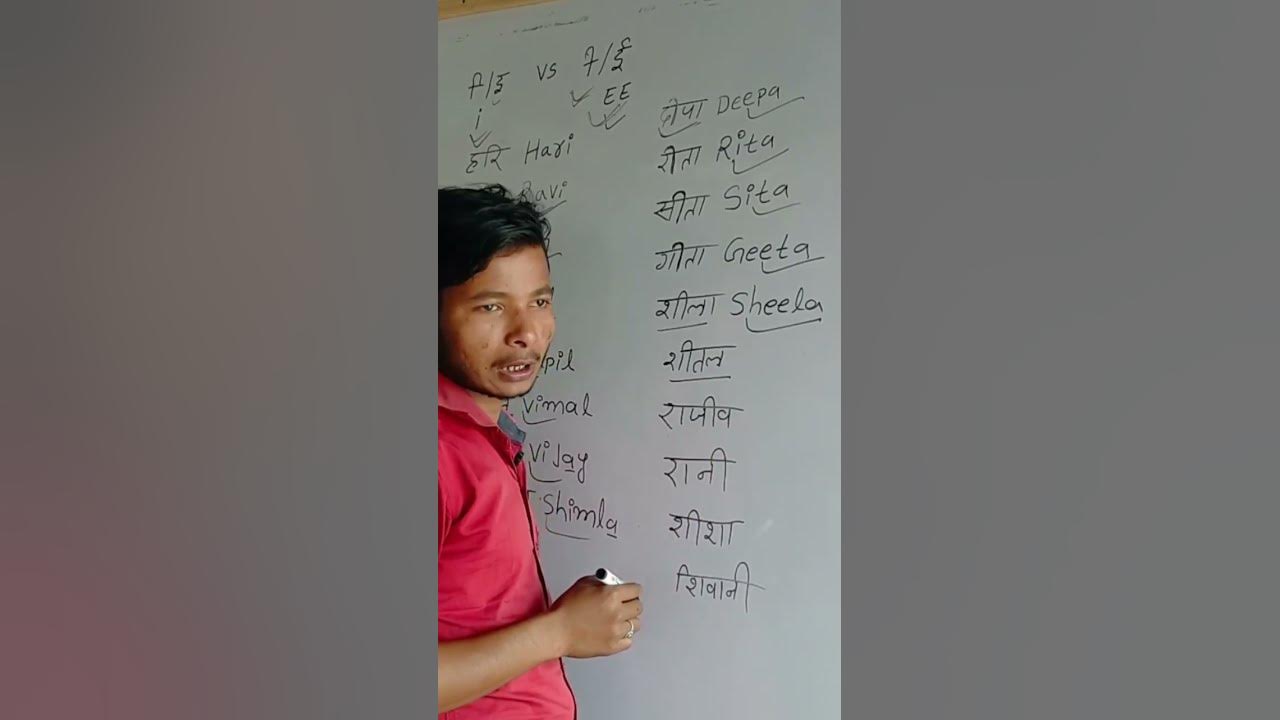 ि/इ vs ी/ई
i EE
हरि Hari
Ravi
pil
Vimal
Vijay
Shimla
दीपा Deepa
रीता Rita
सीता Sita
गीता Geeta
शीला Sheela
शीतल
राजीव
रानी
शीशा
शिवानी